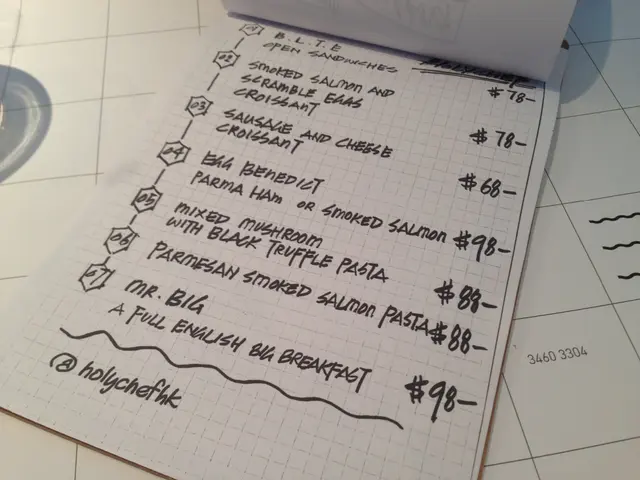 01 B.L.T.E
OPEN SANDWICHES $78-
02 SMOKED SALMON AND
SCRAMBLE EGGS
CROISSANT $78-
03 SAUSAGE AND CHEESE
CROISSANT $68-
04 EGG BENEDICT
PARMA HAM OR SMOKED SALMON $98-
05 MIXED MUSHROOM
WITH BLACK TRUFFLE PASTA $88-
06 PARMESAN SMOKED SALMON PASTA $88-
07 MR. BIG
A FULL ENGLISH BIG BREAKFAST $98-
@holychefhk
3460 3304